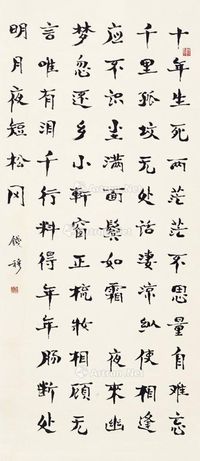 十年生死两茫茫不思量自难忘
千里孤坟无处话凄凉纵使相逢
应不识尘满面鬓如霜 夜来幽
梦忽还乡小轩窗正梳妆相顾无
言唯有泪千行料得年年肠断处
明月夜短松冈
钱穆